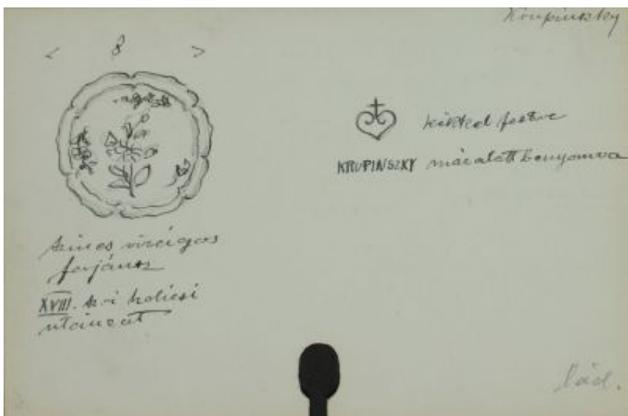 Krupinszky
< 8 >
kékkel festve
KRUPINSZKY máz alatt benyomva
színes virágos
fajánsz
XVIII. sz-i holicsi
utánzat
Lád.